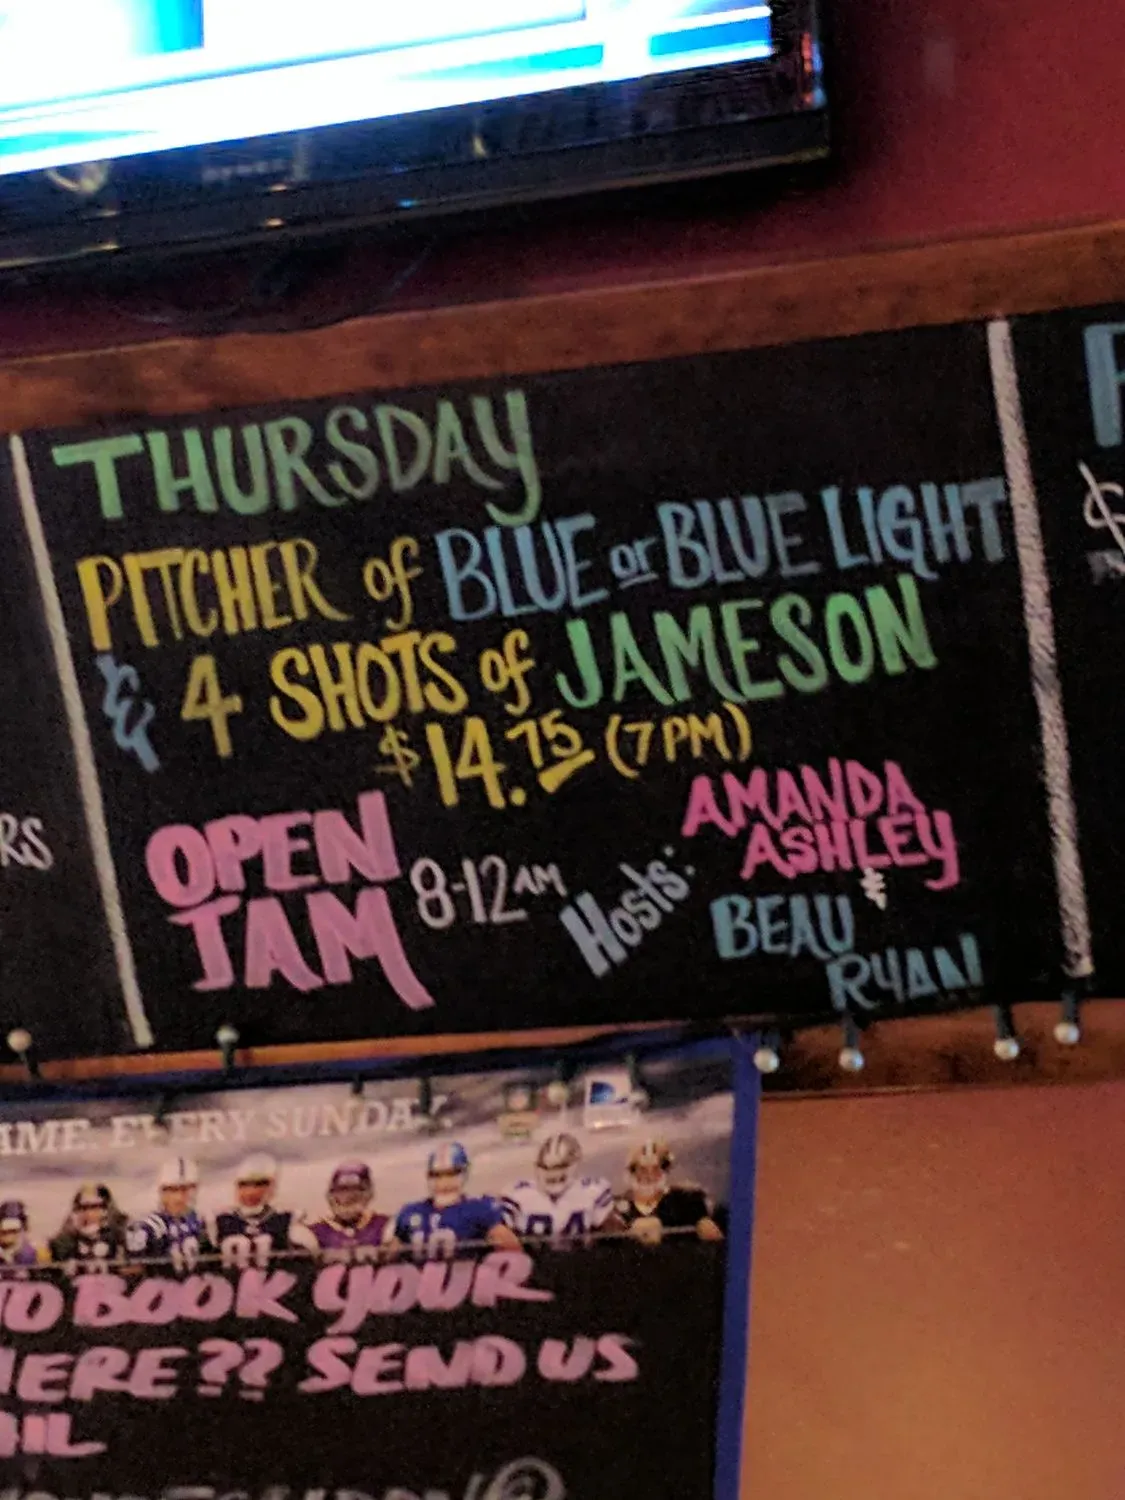 THURSDAY
PITCHER of BLUE or BLUE LIGHT
& 4 SHOTS of JAMESON
$14.75 (7PM)
OPEN
JAM
8-12AM
Hosts:
AMANDA
ASHLEY
&
BEAU
RYAN
RS
AME. EVERY SUNDAY.
TO BOOK YOUR
HERE?? SEND US
AIL